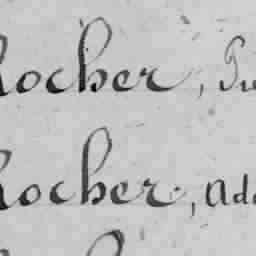 Rocher,
Rocher, Ad